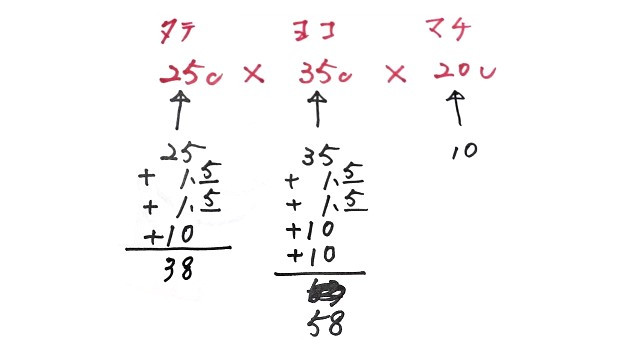 タテ ヨコ マチ
25c × 35c × 20c
25 35 10
+ 1.5 + 1.5
+ 1.5 + 1.5
+10 +10
38 +10
58